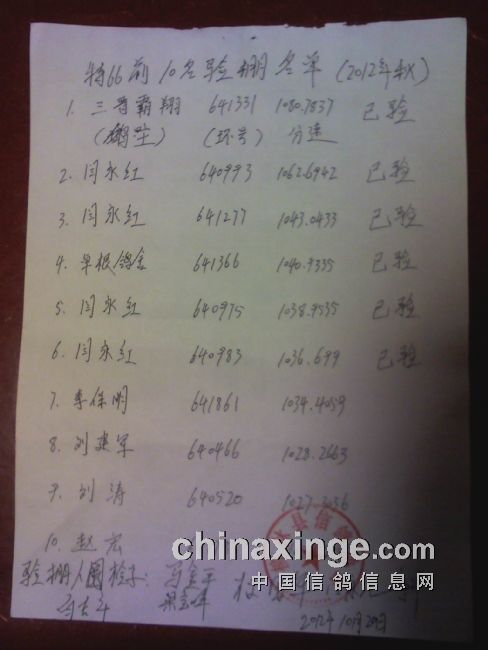 特66前10名验棚名单(2012年秋)
1. 三晋霸翔 641331 1080.7837 已验
(环号) 分速
2. 闫永红 640993 1062.6942 已验
3. 闫永红 641277 1043.0433 已验
4. 鸽舍 641366 1040.9335 已验
5. 闫永红 640975 1038.9535 已验
6. 闫永红 640983 1036.699 已验
7. 李保明 641861 1034.4059
8. 刘建军 640466 1028.2663
9. 刘涛 640520 1027.2036
10. 赵宏
chinaxinge.com
验棚人
中国信鸽信息网
2012年10月20日